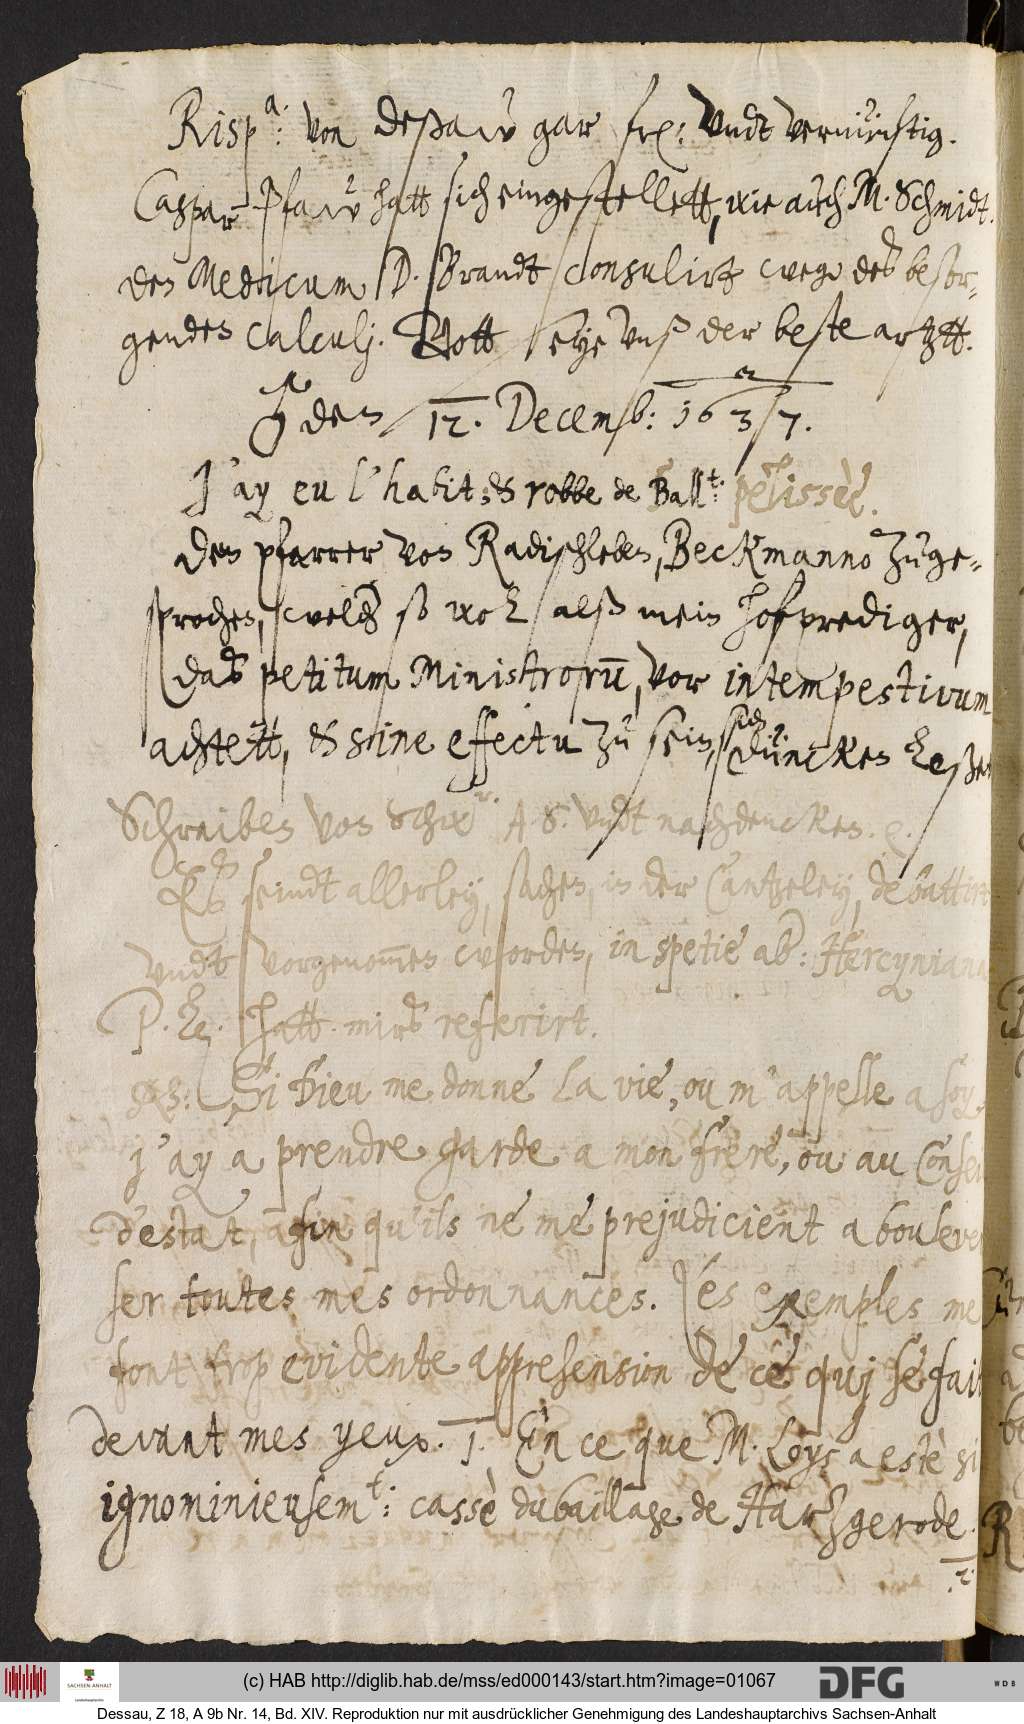 Risp.a: von Deßaw gar frl: vndt vernünftig.
Caspar Pfaw hatt sich eingestellett, wie auch M. Schmidt.
den Medicum D. Brandt consulirt wege des besor-
genden Calculj. Gott seye vnß der beste artztt.
♂ den 12. Decemb: 1637.
J'ay eu l'habit, & robbe de Ball.t: pelissée.
Den pfarrer von Radischleben, Beckmanno zuge-
sprochen, welcher so wol alß mein hofprediger,
das petitum Ministrorum, vor intempestivum
achtett, & sine effectu zu sein, sich düncken leßet
Schreiben von Schw A. S. vndt nachdencken. e.
Es seindt allerley, sachen, in der Cantzeley, debattirt
vndt vorgenommen worden, in spetie ab: Hercyniana
P. L. hatt mirs referirt.
NB: Si Dieu me donne la vie, ou m'appelle a soy,
j'ay a prendre garde a mon frere, ou au Conseil
d'estat, afin qu'ils ne me prejudicient a boulever
ser toutes mes ordonnances. Les exemples me
font trop evidente apprehension de ce quj se fait
devant mes yeux. 1. En ce que M. Loys a estè si
ignominieusem.t: cassè du baillage de Hartzgerode.
2.
(c) HAB http://diglib.hab.de/mss/ed000143/start.htm?image=01067
SACHSEN-ANHALT
DFG
WDB
Dessau, Z 18, A 9b Nr. 14, Bd. XIV. Reproduktion nur mit ausdrücklicher Genehmigung des Landeshauptarchivs Sachsen-Anhalt